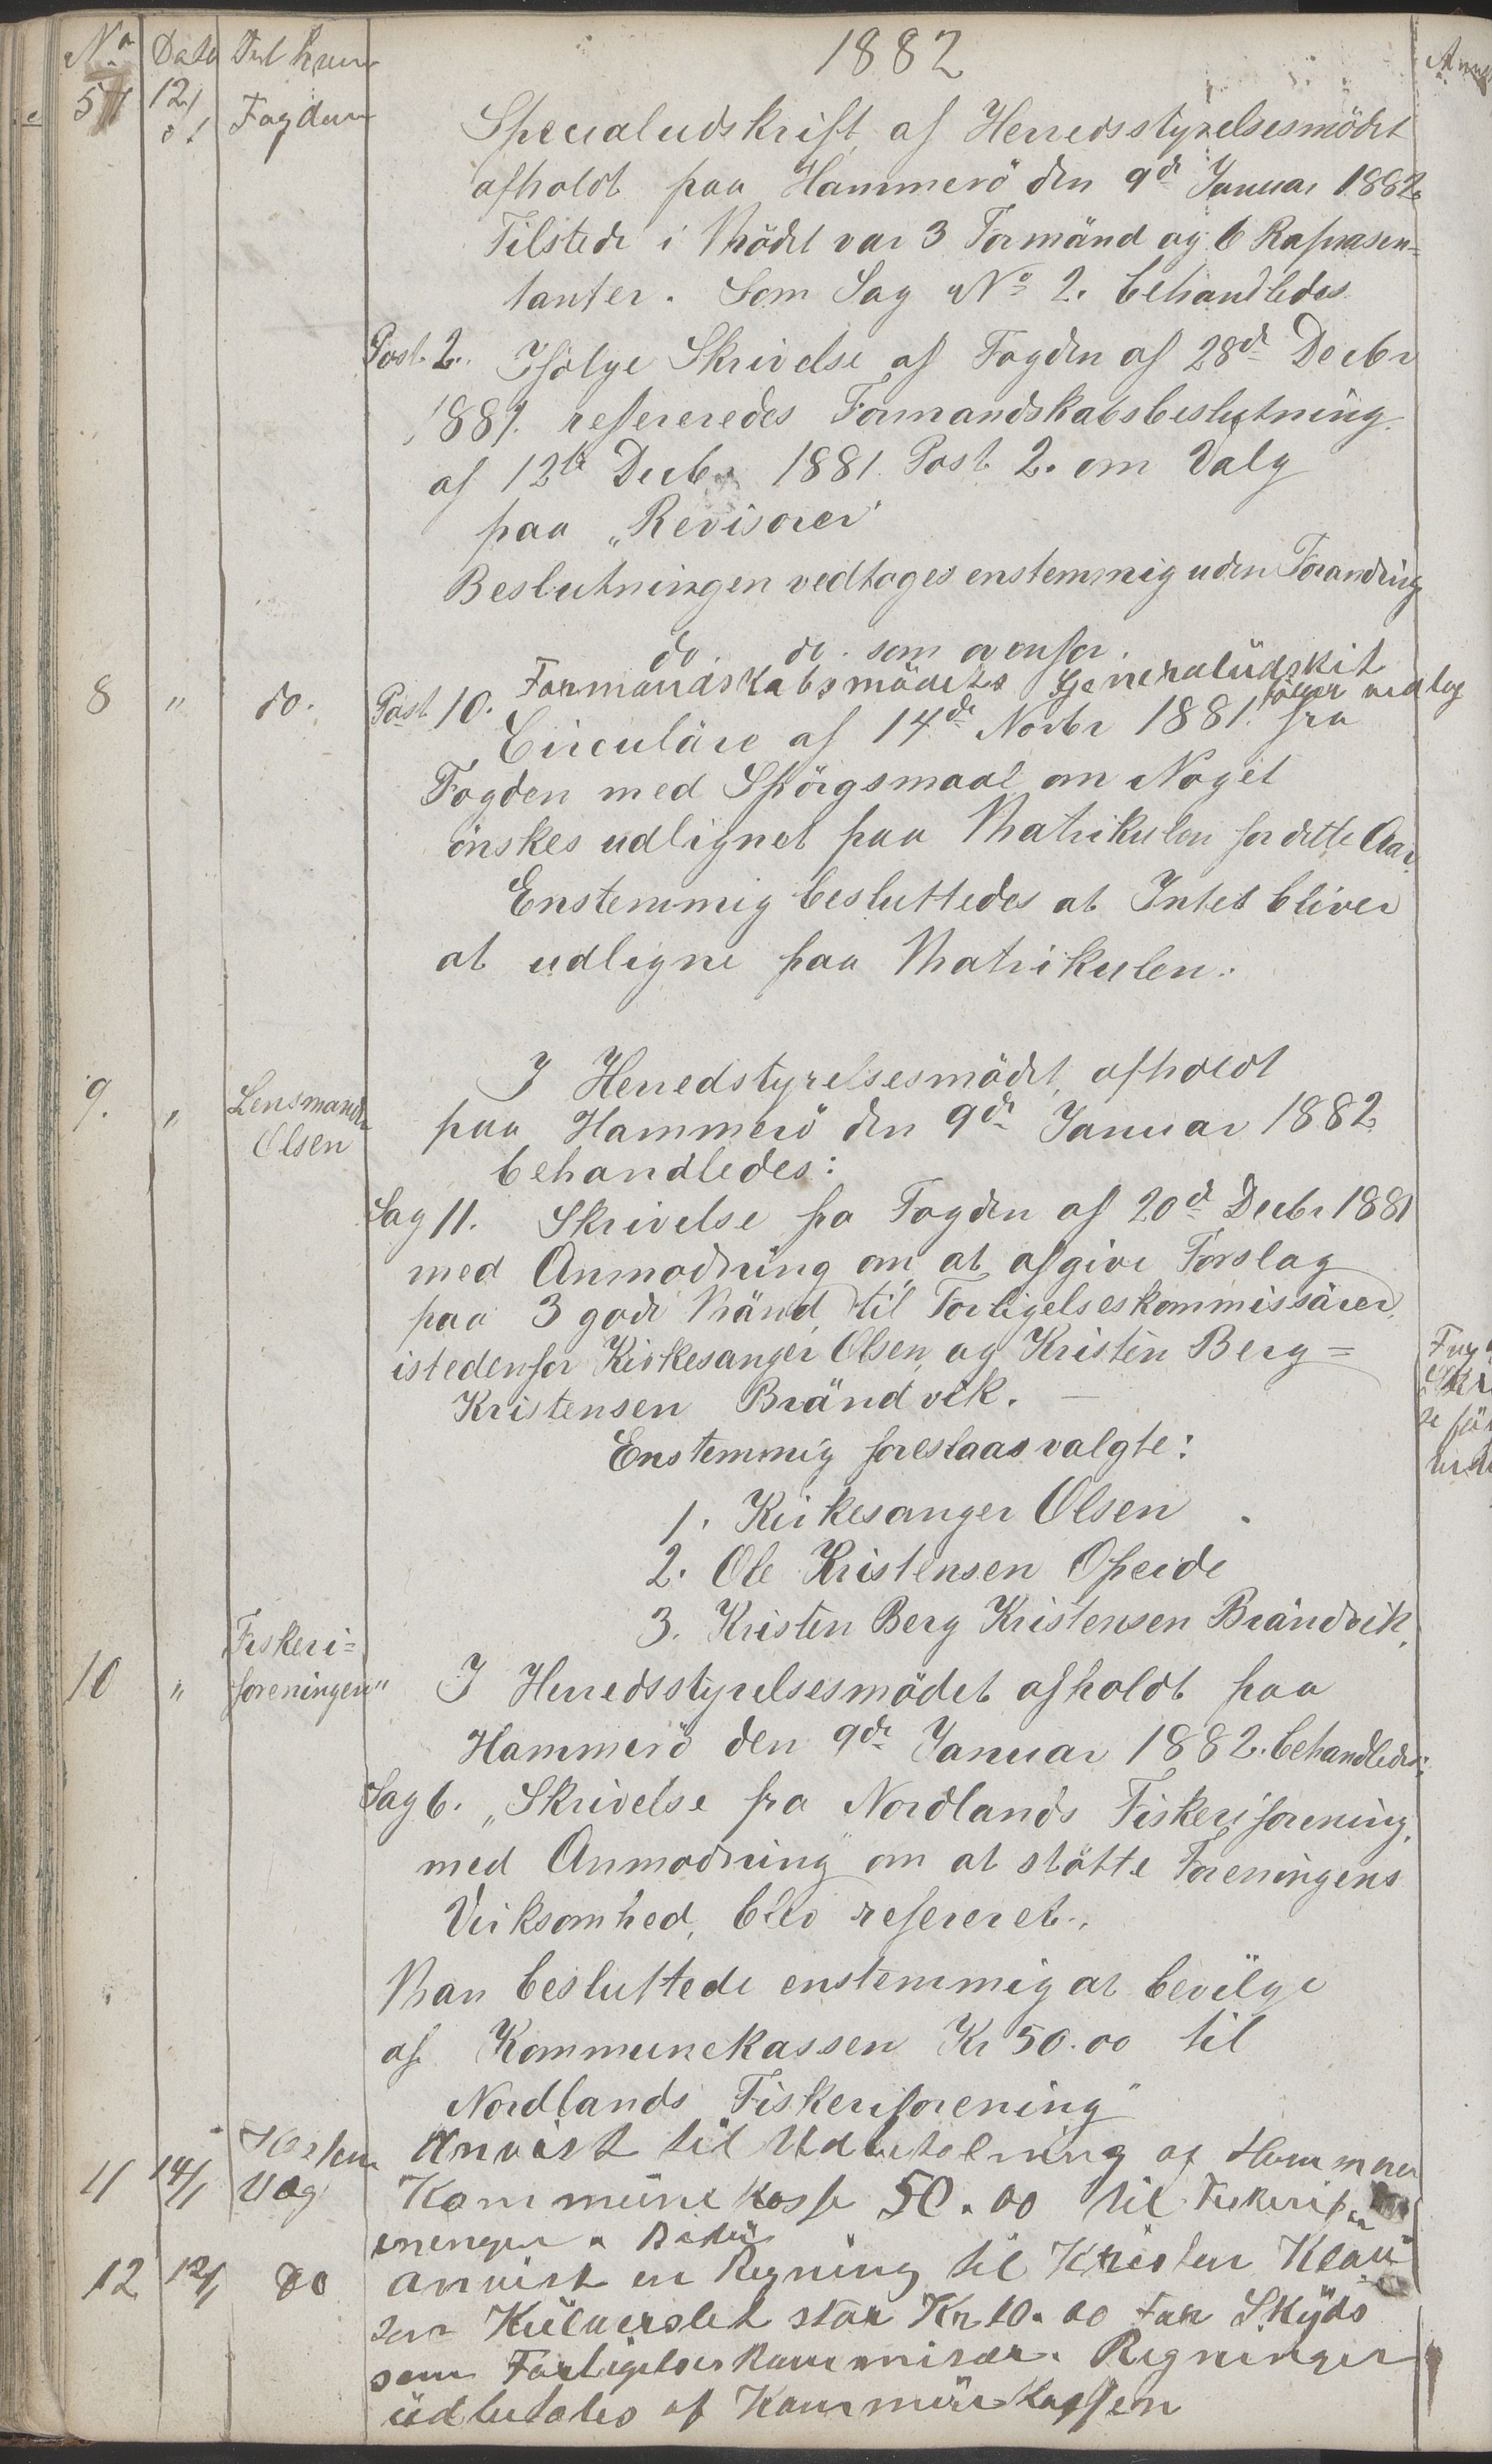 1882
No Dato Til hvem
7 12/1 Fogden
Specialudskrift af Herredsstyrelsesmödet
afholdt paa Hammerö den 9de Januar 1882.
Tilstede i Mödet var 3 Formänd og 6 Repräsen-
tanter. Som Sag No 2. behandledes
Post 2. Ifölge Skrivelse af Fogden af 28de Decbr
1881. refereredes Formandskabsbeslutning
af 12te Decbr 1881 Post 2. om Valg
paa "Revisorer"
Beslutningen vedtages enstemmig uden Forandring
do. do. som ovenfor.
8 " do. Post 10. Formandskabsmödets Generaludskrift
følger vedlag
Circuläre af 14de Novbr 1881. fra
Fogden med Spörgsmaal om Noget
önskes udlignet paa Matrikulen for dette Aar.
Enstemmig besluttedes at Intet bliver
at udligne paa Matrikulen.
9. " Lensmand Olsen
I Herredstyrelsesmödet, afholdt
paa Hammerö den 9de Januar 1882
behandledes:
Sag 11. Skrivelse fra Fogden af 20de Decbr 1881
med Anmodning om at afgive Forslag
paa 3 gode Mänd til Forligelseskommissärer,
istedenfor Kirkesanger Olsen og Kristen Berg=
Kristensen Brändvik. —
Enstemmig foreslaas valgte:
1. Kirkesanger Olsen
2. Ole Kristensen Opeide
3. Kristen Berg Kristensen Brändvik.
10 " Fiskeri=
foreningen "
I Herredsstyrelsesmödet afholdt paa
Hammerö den 9de Januar 1882. behandledes:
Sag 6. "Skrivelse fra Nordlands Fiskeriforening,
med Anmodning om at stötte Foreningens
Virksomhed, blev refereret.
Man besluttede enstemmig at bevilge
af Kommunekassen Kr 50.00 til
Nordlands Fiskeriforening"
11 14/1 Vag
Anvist til Udbetalning af Hammer
Kommune kasse 50.00 til Fiskerifor
eningen
12 12/1 do
anvist en Regning til Kristen Klau
sen stor Kr 10.00 for Skyds
som Forligelses Kommisær. Regningen
udbetales af Kommünekassen